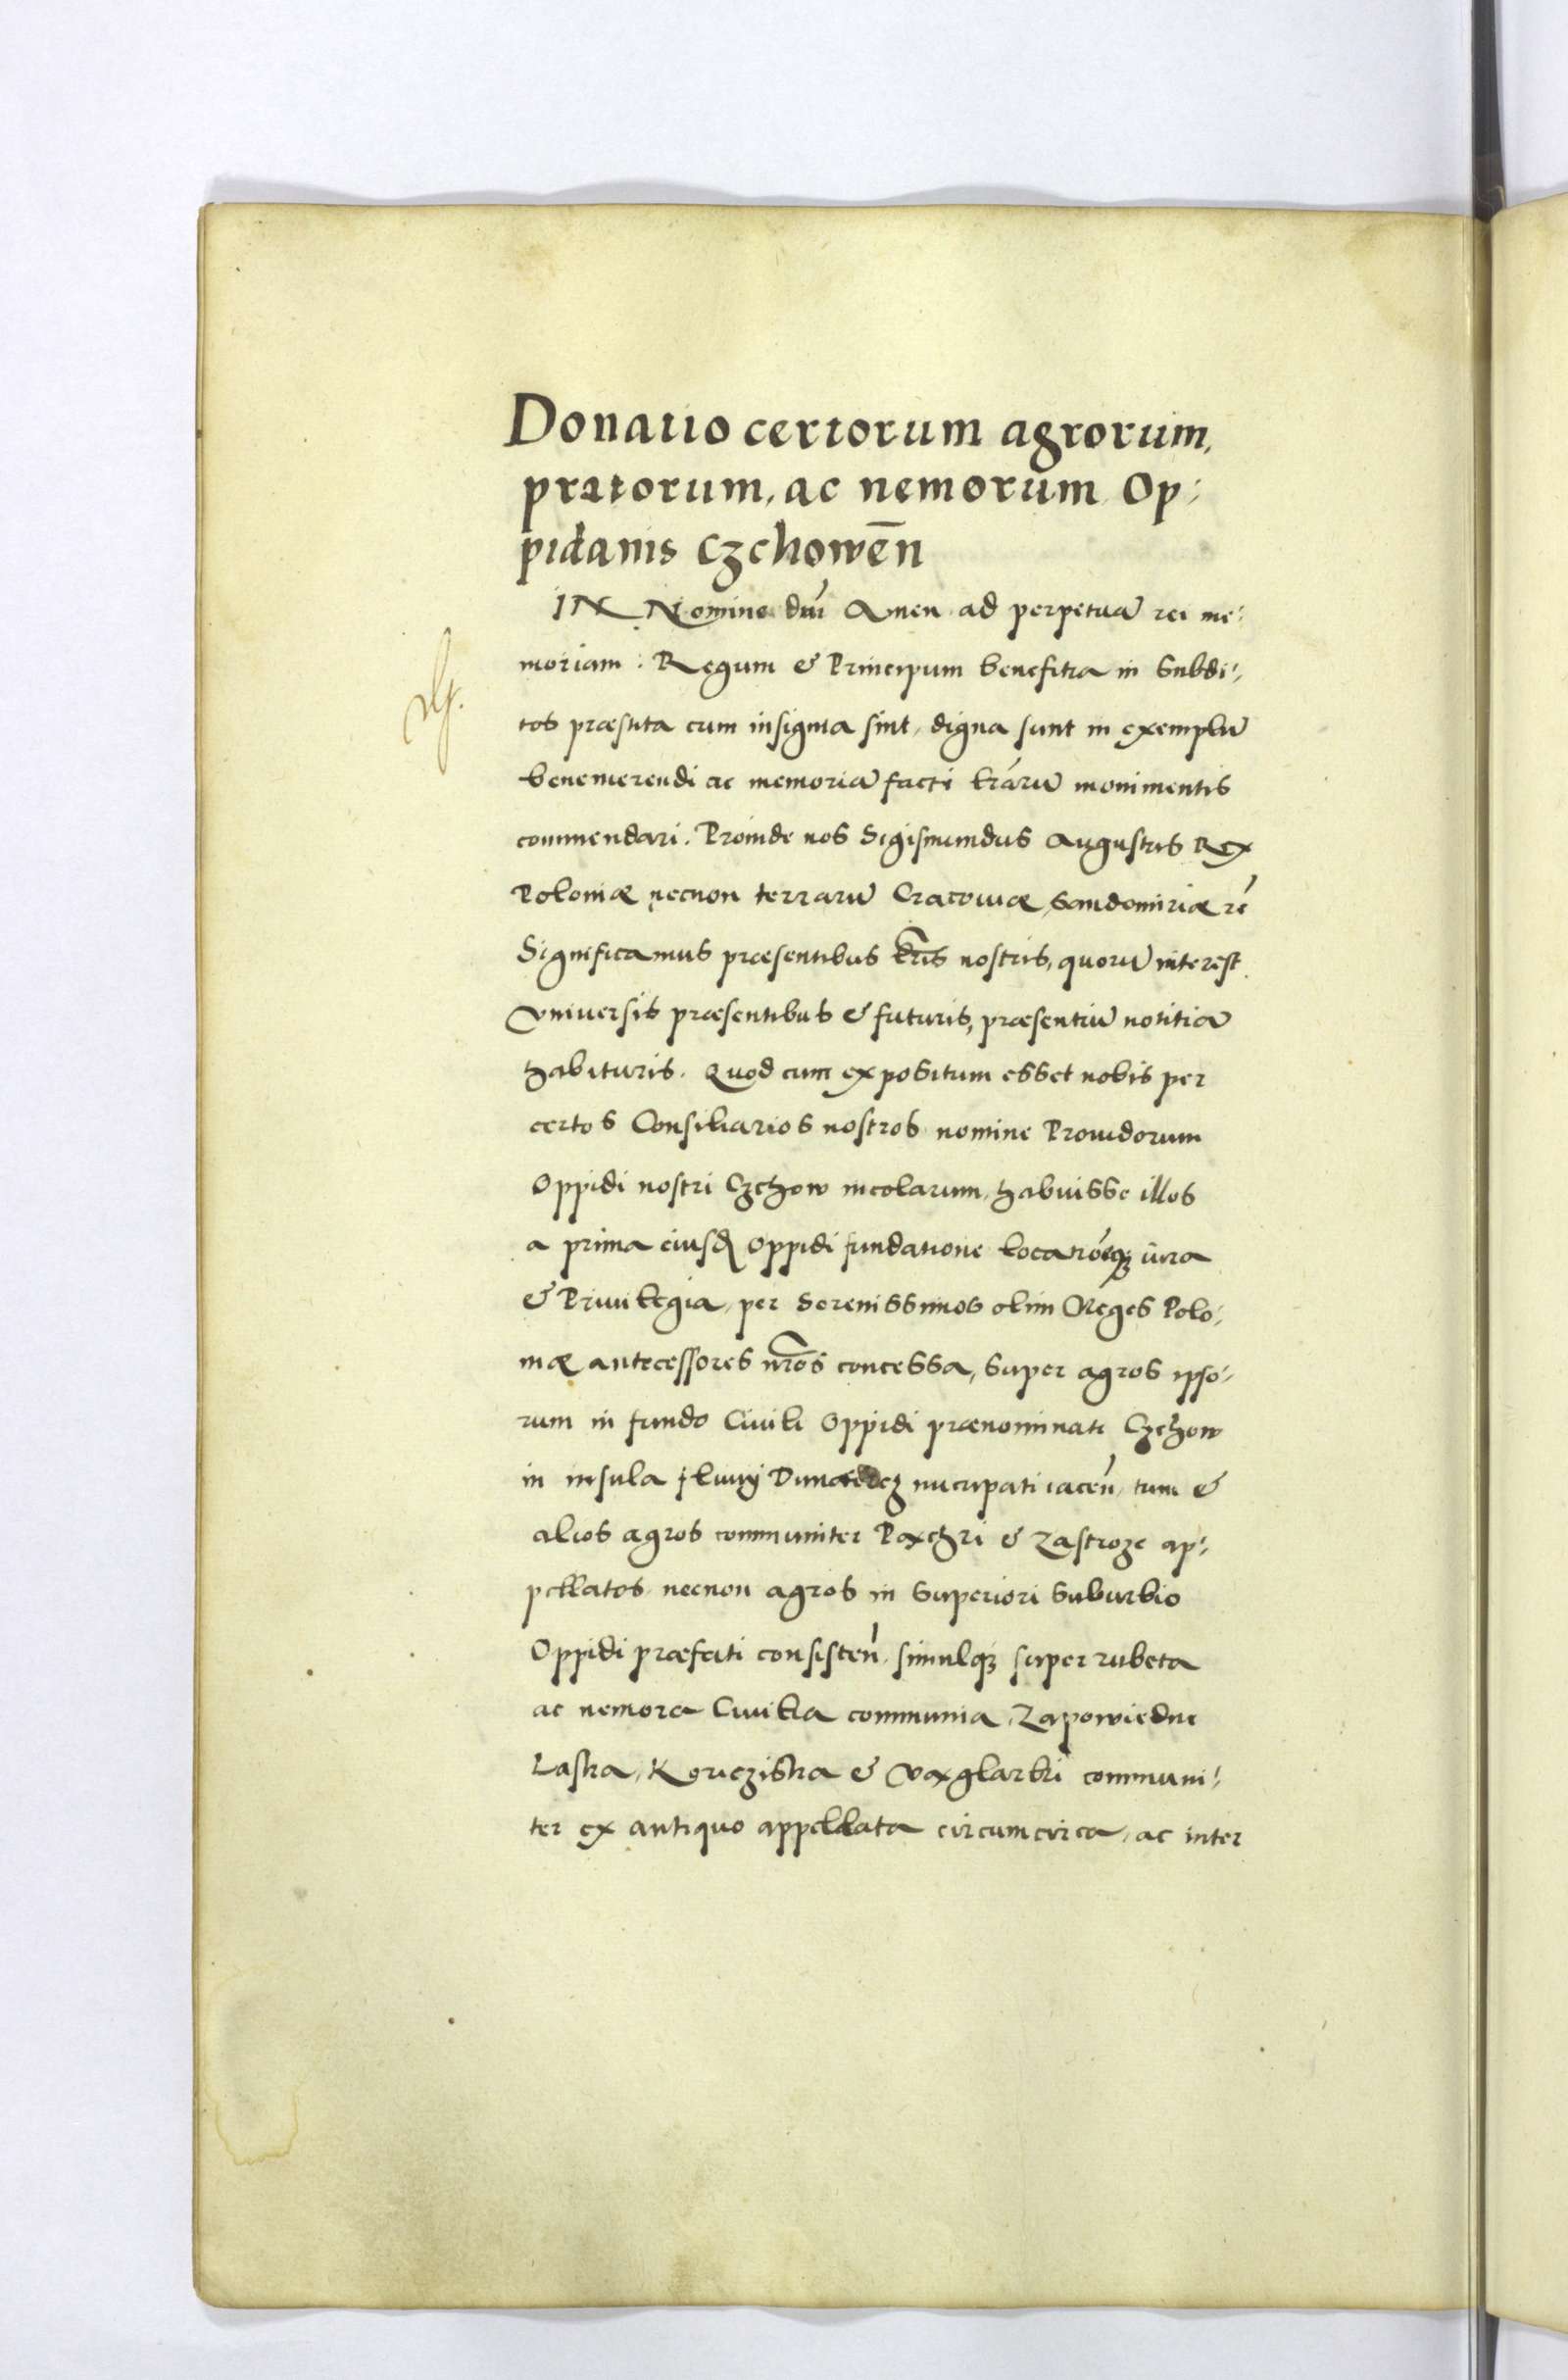 Donatio certorum agrorum,
pratorum, ac nemorum Op:
pidanis Czchowen̄
IN Nomine dni Amen ad perpetuā rei me:
moriam: Regum & Principum benefitia in Subdi:
tos præstita cum insignia sint, digna sunt in exemplū
benemerendi ac memoriā facti lrārū monimentis
commendari. Proinde nos Sigismundus Augustus Rex
Poloniæ necnon terrarū Cracoviæ, Sandomiriæ rc̄
Significamus præsentibus lris nostris, quorū interest
Universis præsentibus & futuris, præsentiū notitiā
habituris. Quod cum expositum esset nobis per
certos Consiliarios nostros nomine Providorum
Oppidi nostri Czchow incolarum, habuisse illos
a prima eiusd Oppidi fundatione locatiōeq3 iura
& Privilegia, per Serenissimos olim Reges Polo:
niæ antecessores nros concessa, super agros ipso:
rum in fundo Civili Oppidi prænominati Czchow
in insula fluvij nucupati iacen̄, tum &
alios agros communiter Paxchri & Zastroze ap:
pellatos necnon agros in Superiori Suburbio
Oppidi præfati consisten̄. simulq3 super rubeta
ac nemora Civilia communia, Zapowiedne
Laska, & communi:
ter ex antiquo appellata circumcirca, ac inter